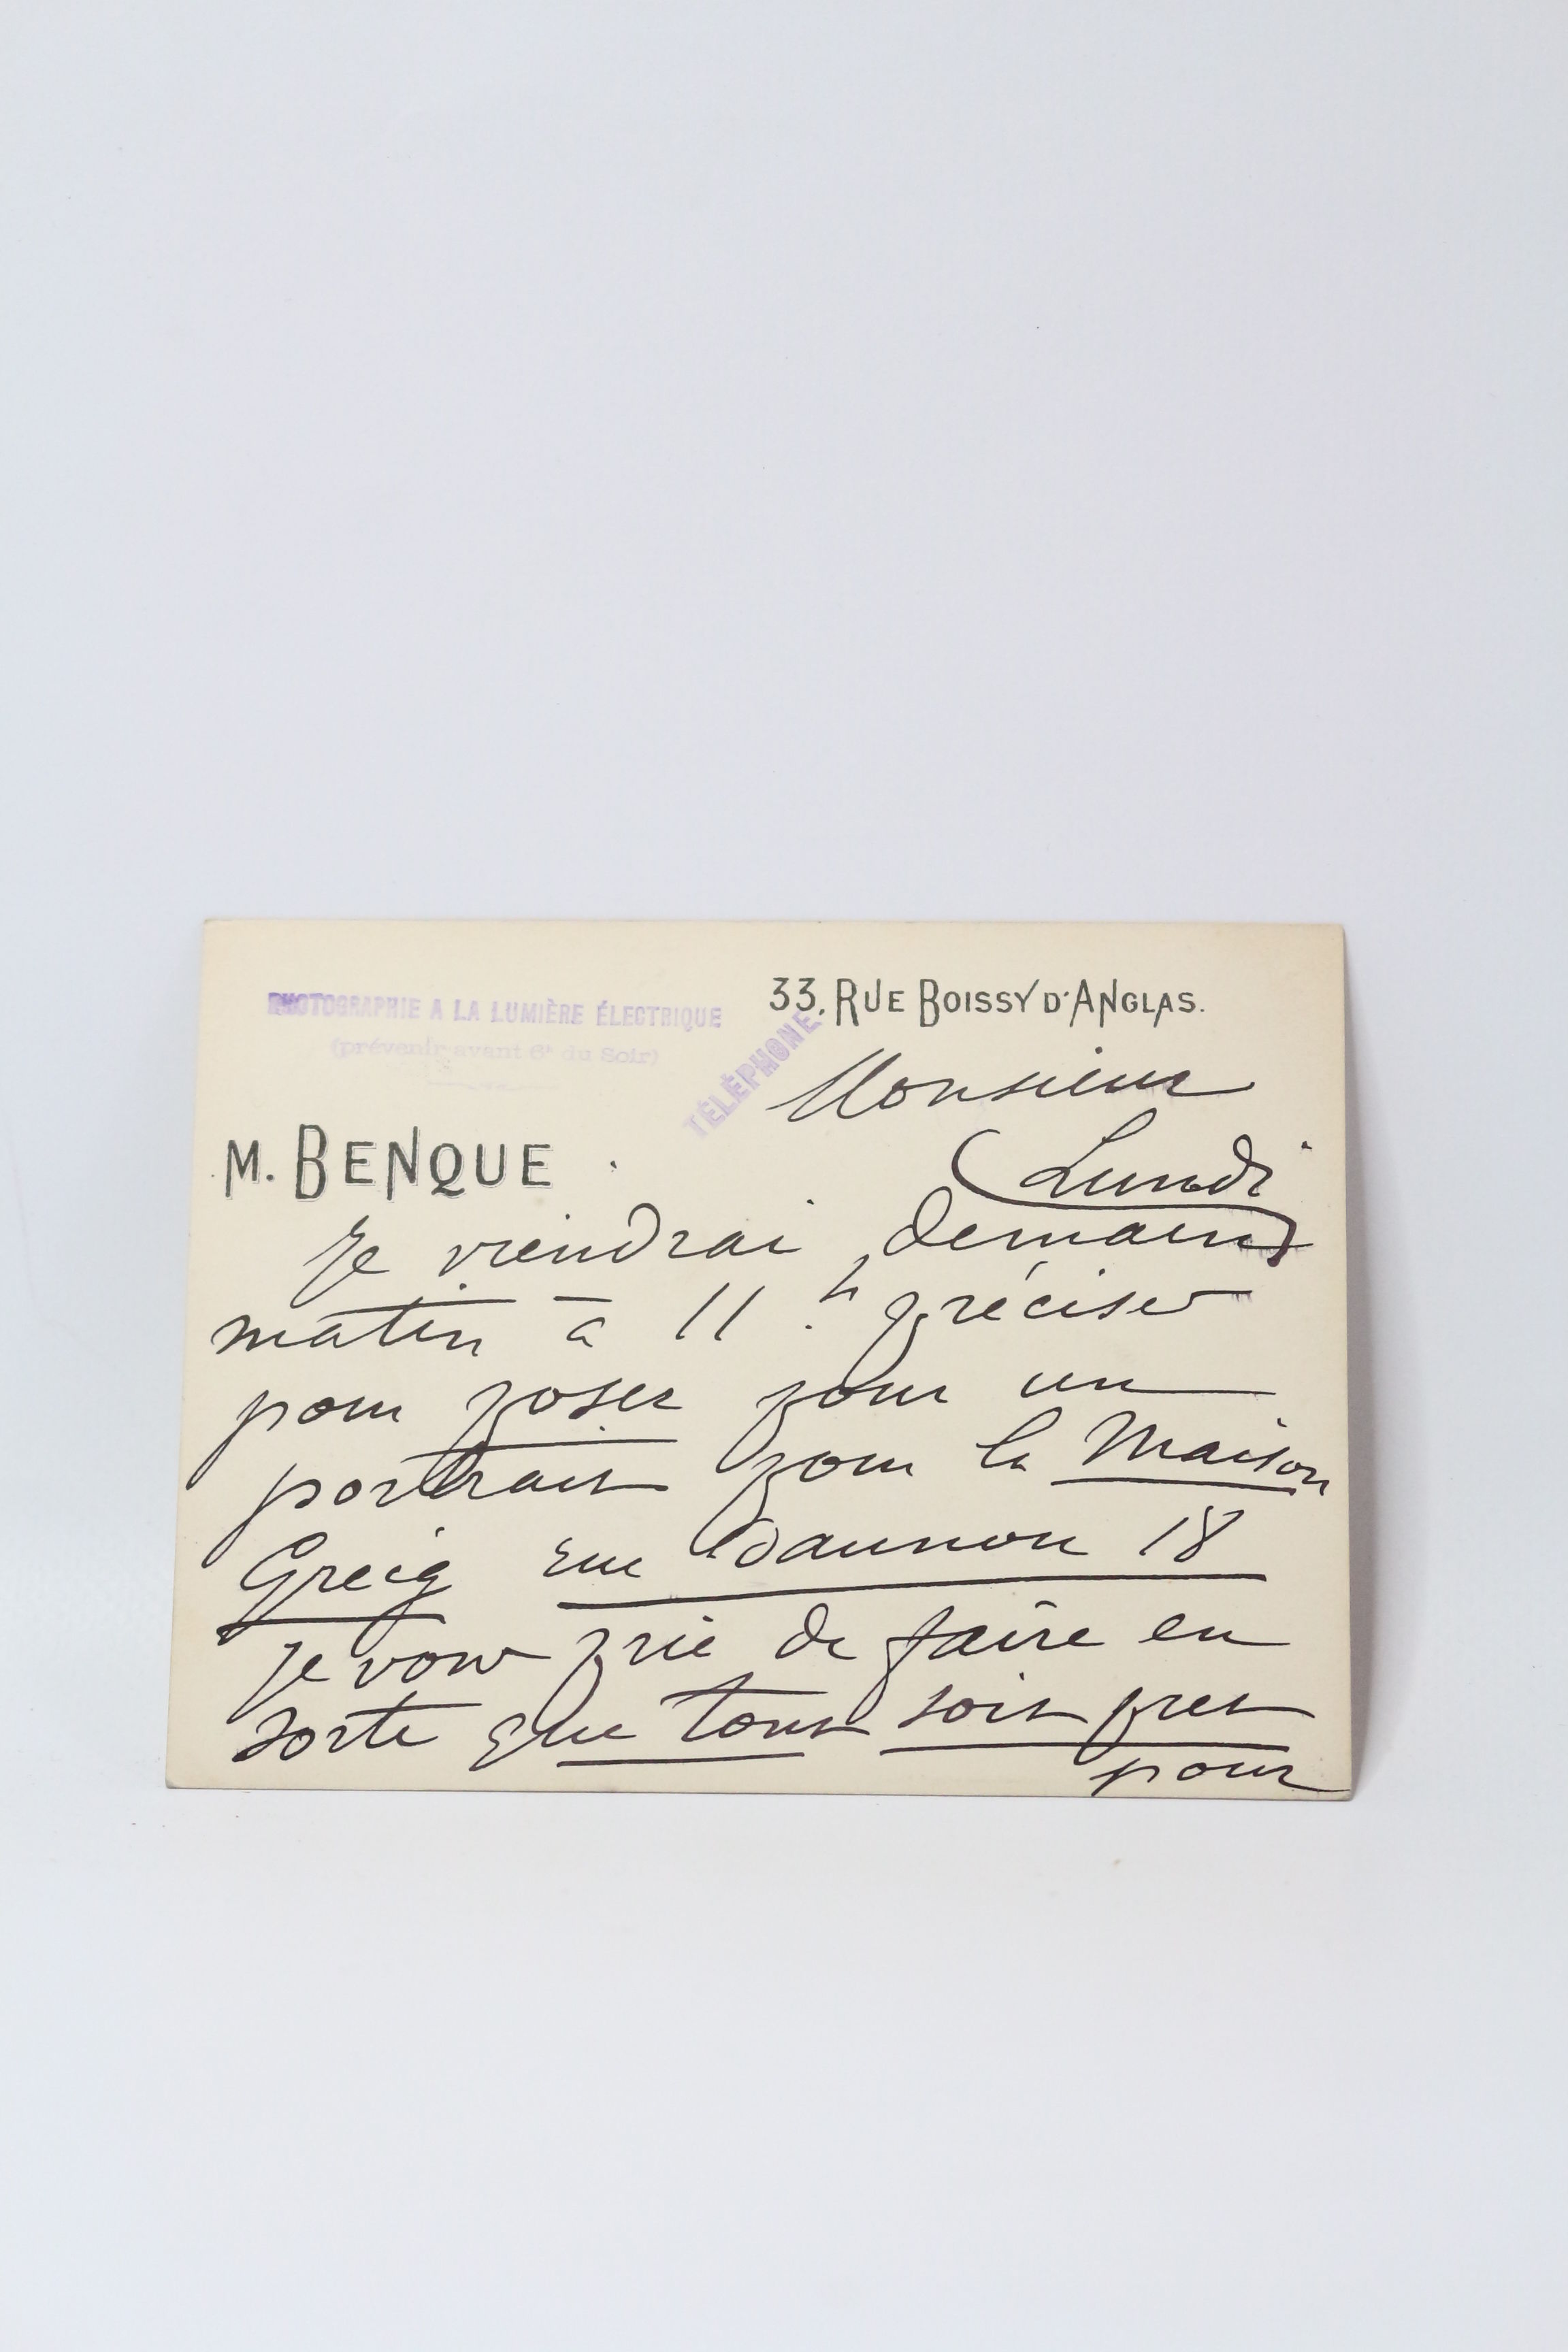 PHOTOGRAPHIE A LA LUMIÈRE ÉLECTRIQUE
(prévenir avant 6h du Soir)
TÉLÉPHONE
33, RUE BOISSY D'ANGLAS.
M. BENQUE
Monsieur
(Lundi)
Je viendrai demain
matin à 11h précises
pour poser pour un
portrait pour la Maison
Greig rue Daunou 18
je vous prie de faire en
sorte que tout soit pret
pour